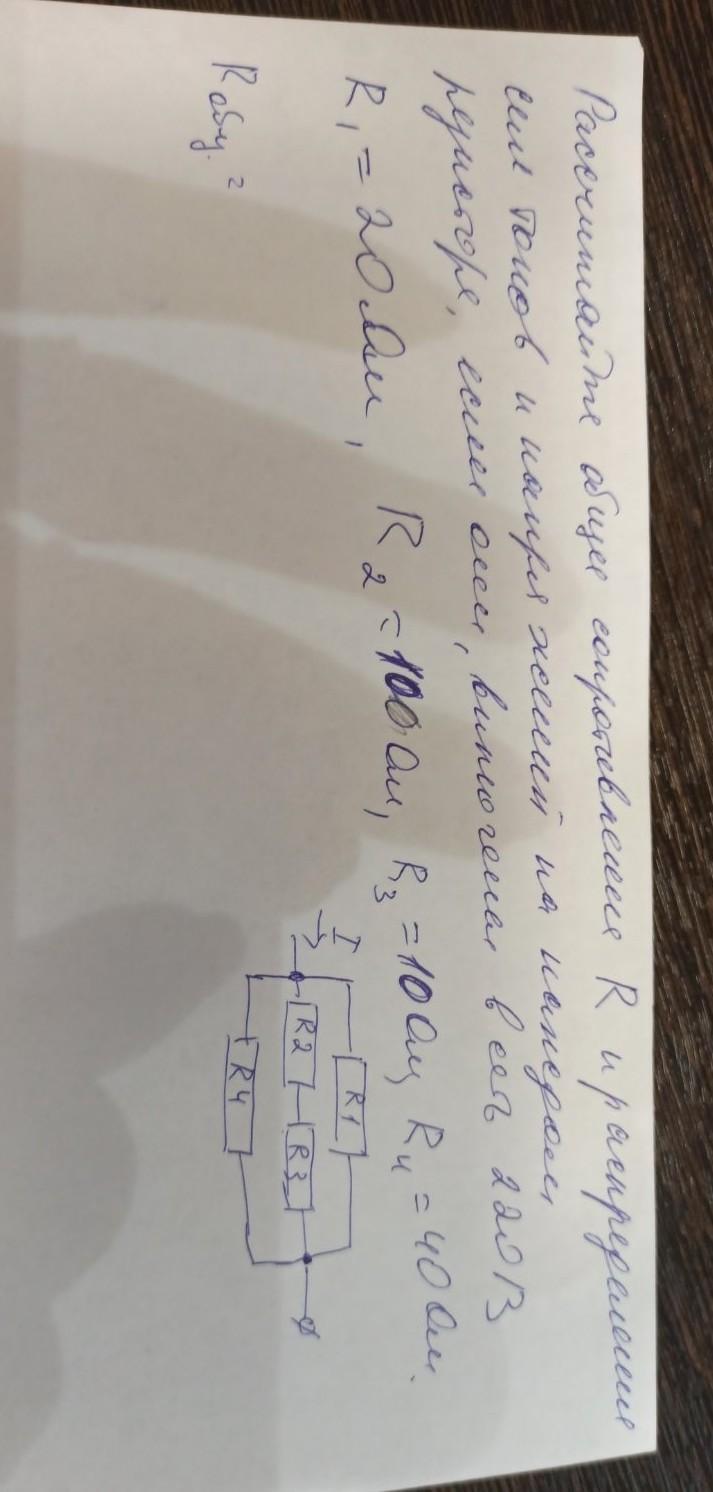 Рассчитайте общее сопротивление R и распределение
сил токов и напряжений на каждом
резисторе, если они, включены в сеть 220В
R1 = 20 Ом, R2 = 100 Ом, R3 = 10 Ом, R4 = 40 Ом.
Rобщ. =
I
R1
R2 R3
R4